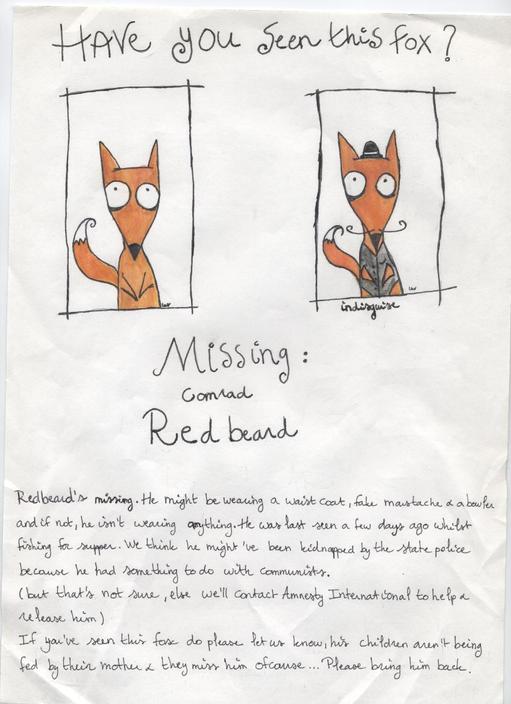 HAVE you seen this fox?
indisguise
Missing:
Conrad
Redbeard
Redbeard's missing. He might be wearing a waist coat, fake moustache & a bowler
and if not, he isn't wearing anything. He was last seen a few days ago whilst
fishing for supper. We think he might've been kidnapped by the state police
because he had something to do with communists.
(but that's not sure, else we'll contact Amnesty International to help &
release him)
If you've seen this fox do please let us know, his children aren't being
fed by their mother & they miss him ofcourse... Please bring him back.